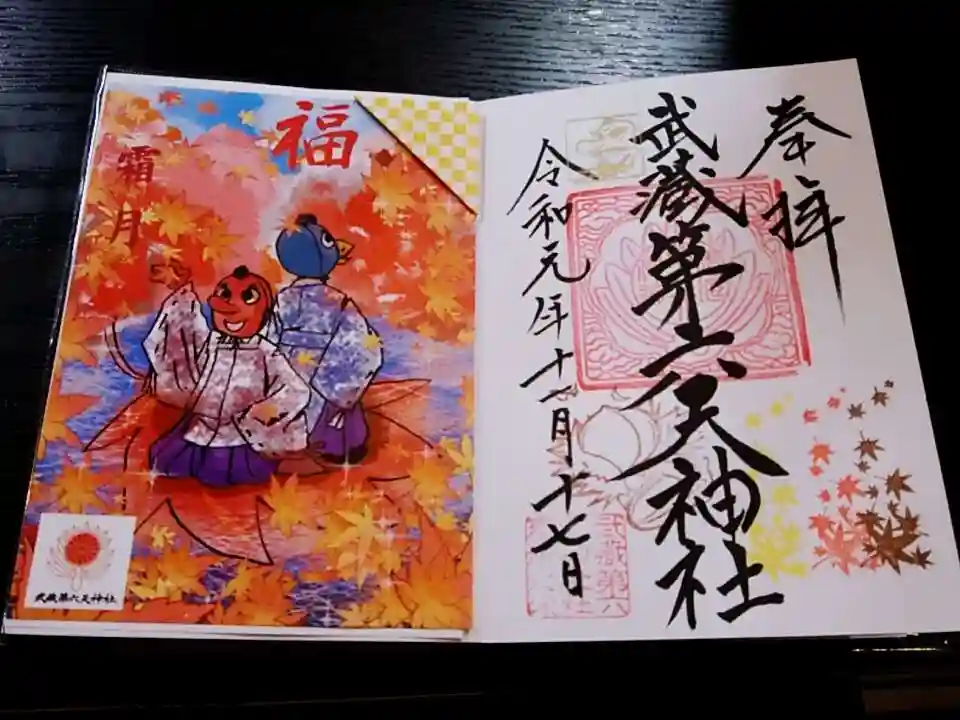 奉拝
武蔵第六天神社
令和元年十一月十七日
武蔵第六
福
霜月
武蔵第六天神社